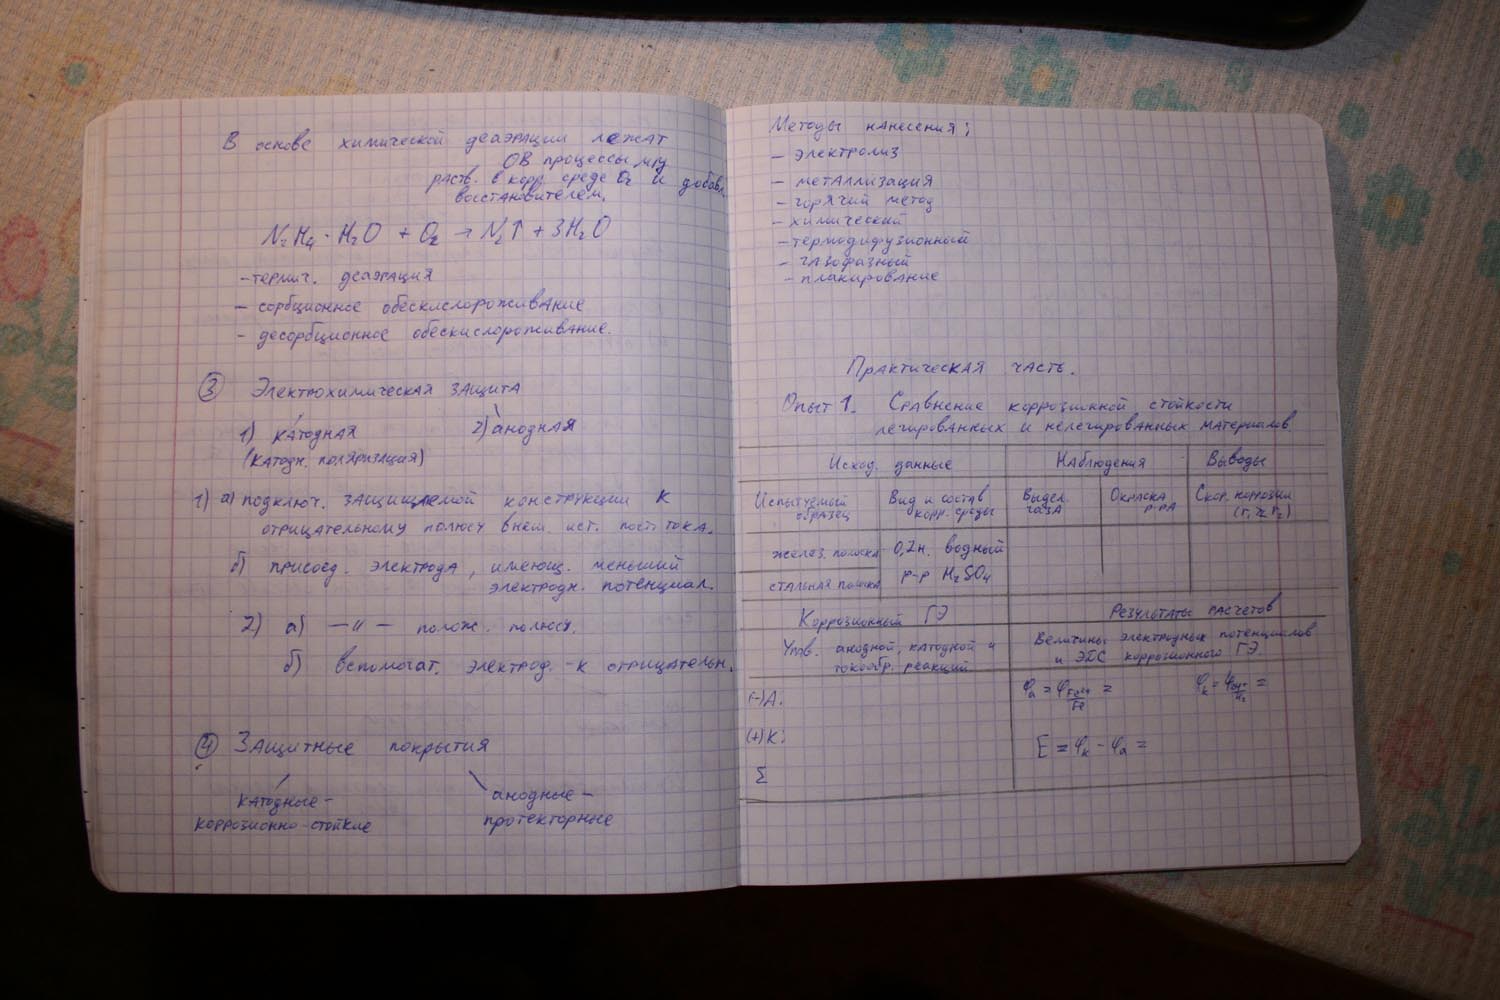 В основе химической деаэрации лежат
ОВ процессы м/у
раств. в корр. среде O₂ и добавл.
восстановителем.
N₂H₄·H₂O + O₂ → N₂↑ + 3H₂O
-термич. деаэрация
- сорбционное обескислороживание
- десорбционное обескислороживание.
③ Электрохимическая защита
1) катодная 2) анодная
(катодн. поляризация)
1) а) подключ. защищаемой конструкции к
отрицательному полюсу внеш. ист. пост. тока.
б) присоед. электрода, имеющ. меньший
электродн. потенциал.
2) а) —〃— полож. полюсу.
б) вспомогат. электрод - к отрицательн.
④ Защитные покрытия
катодные- анодные-
коррозионно-стойкие протекторные
Методы нанесения:
- электролиз
- металлизация
- горячий метод
- химический
- термодифузионный
- газофазный
- плакирование
Практическая часть.
Опыт 1. Сравнение коррозионной стойкости
легированных и нелегированных материалов.
Исход. данные Наблюдения Выводы
Испытуемый образец Вид и состав корр. среды Выдел. газа Окраска р-ра Скор. коррозии (r₁ ≷ r₂)
желез. полоска 0,2н. водный
стальная полоска р-р H₂SO₄
Коррозионный ГЭ Результаты расчетов
Ур. анодной, катодной и Величины электродных потенциалов
токообр. реакций и ЭДС коррозионного ГЭ.
(-)А: φₐ = φ Fe²⁺/Fe = φₖ = φ 2H⁺/H₂ =
(+)К: E = φₖ - φₐ =
Σ